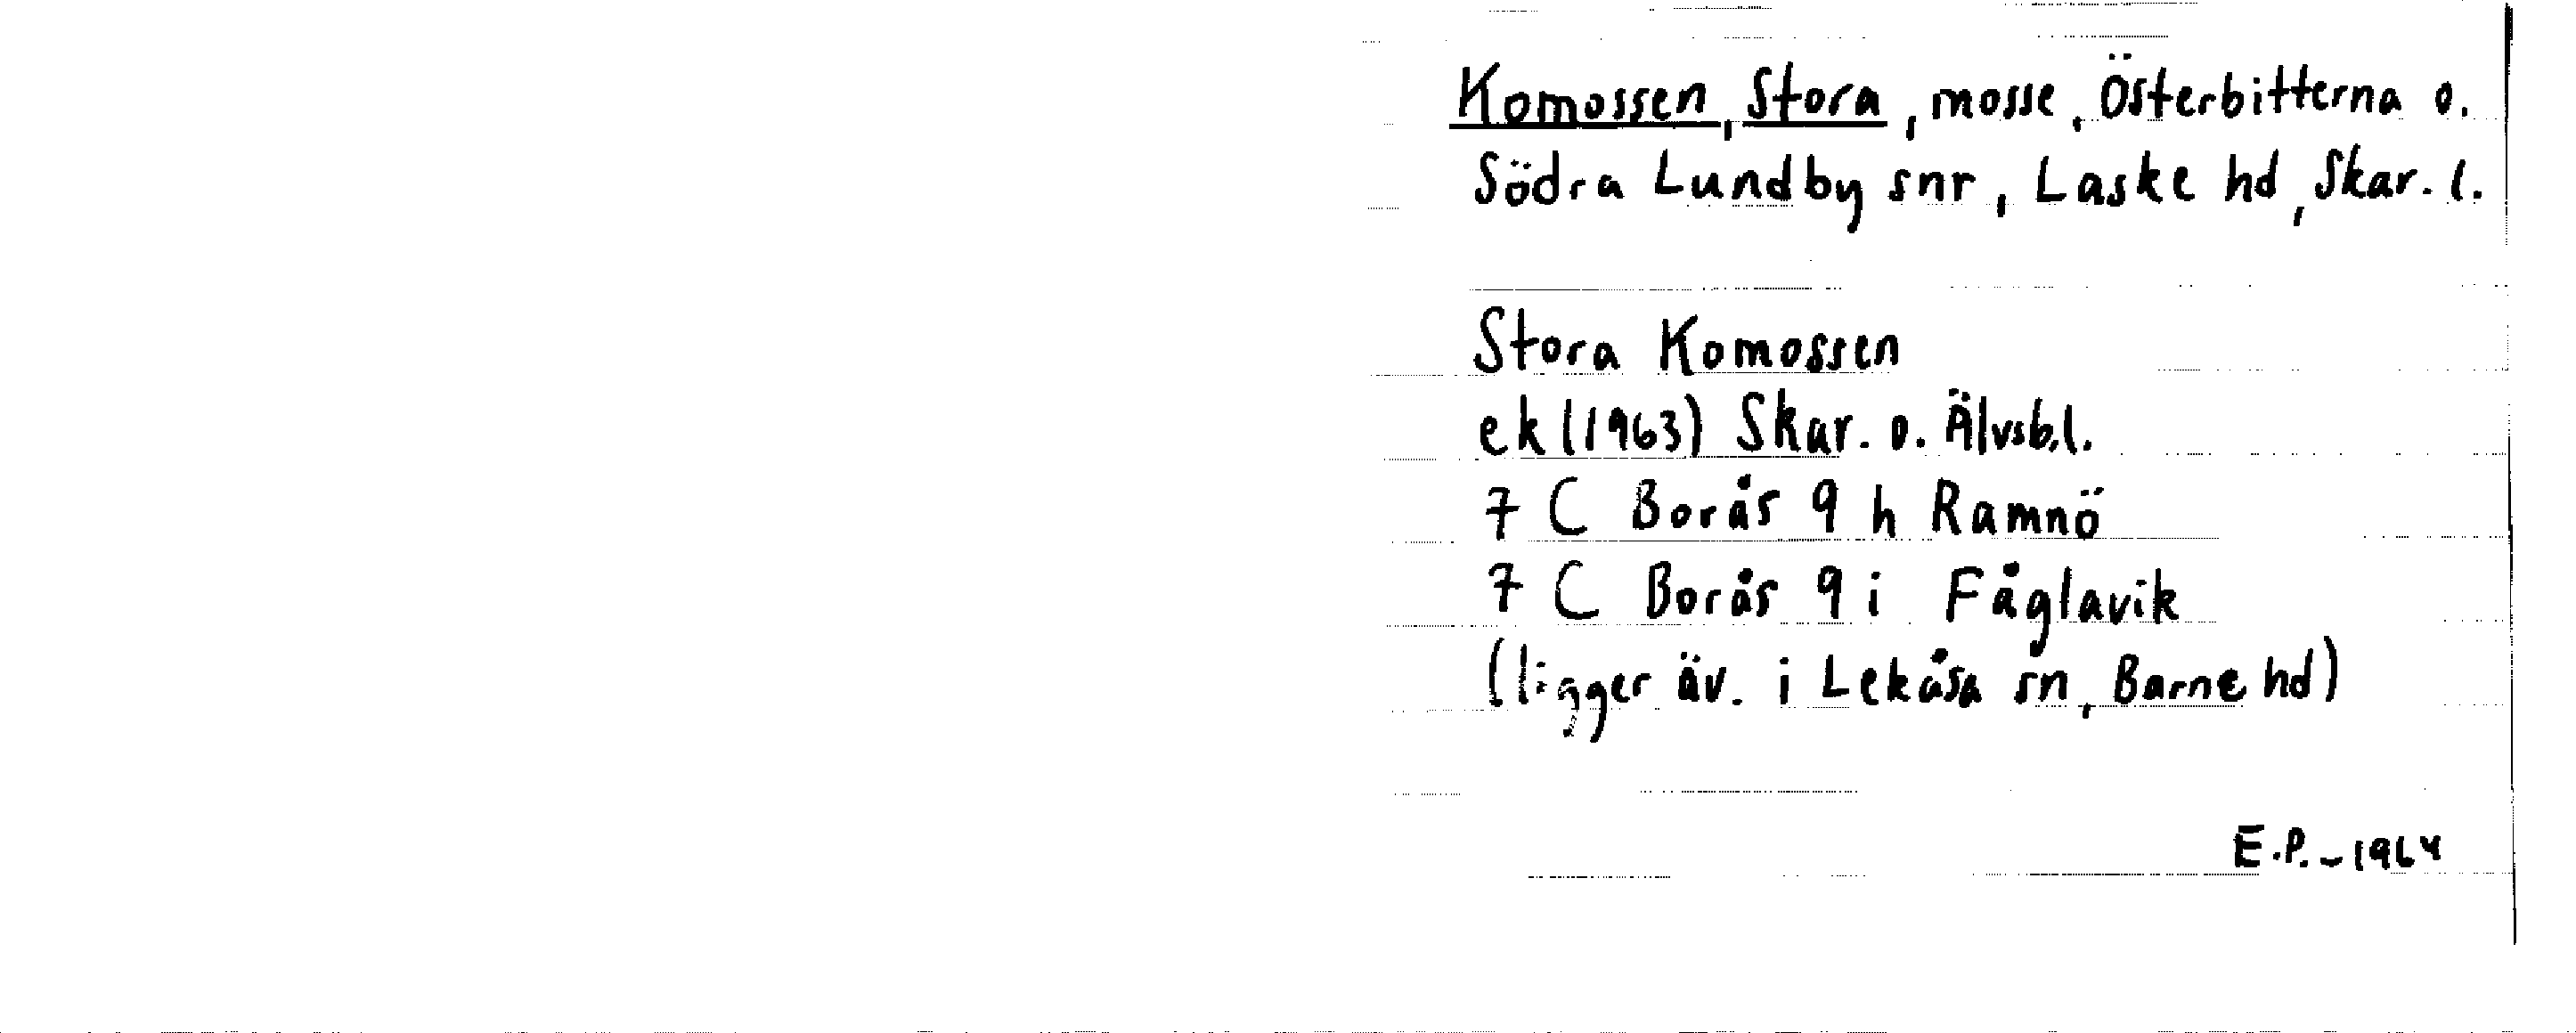 Komossen, Stora, mosse, Österbitterna o.
Södra Lundby snr, Laske hd, Skar. l.
Stora Komossen
ek (1963) Skar. o. Älvsb.l.
7 C Borås 9 h Ramnö
7 C Borås 9 i Fåglavik
(ligger äv. i Lekåsa sn, Barne hd)
E.P. - 1964